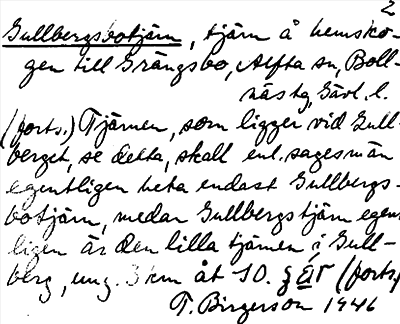 2
Gullbergsbotjärn, tjärn å hemsko-
gen till Grängsbo, Alfta sn, Boll-
näs tg, Gävl. l.
(forts.) Tjärnen, som ligger vid Gull-
berget, se detta, skall enl. sagesmän
egentligen heta endast Gullbergs-
botjärn, medan Gullbergstjärn egent
ligen är den lilla tjärnen i Gull-
berg, ung. 3 km åt SO. (forts)
T. Birgerson 1946